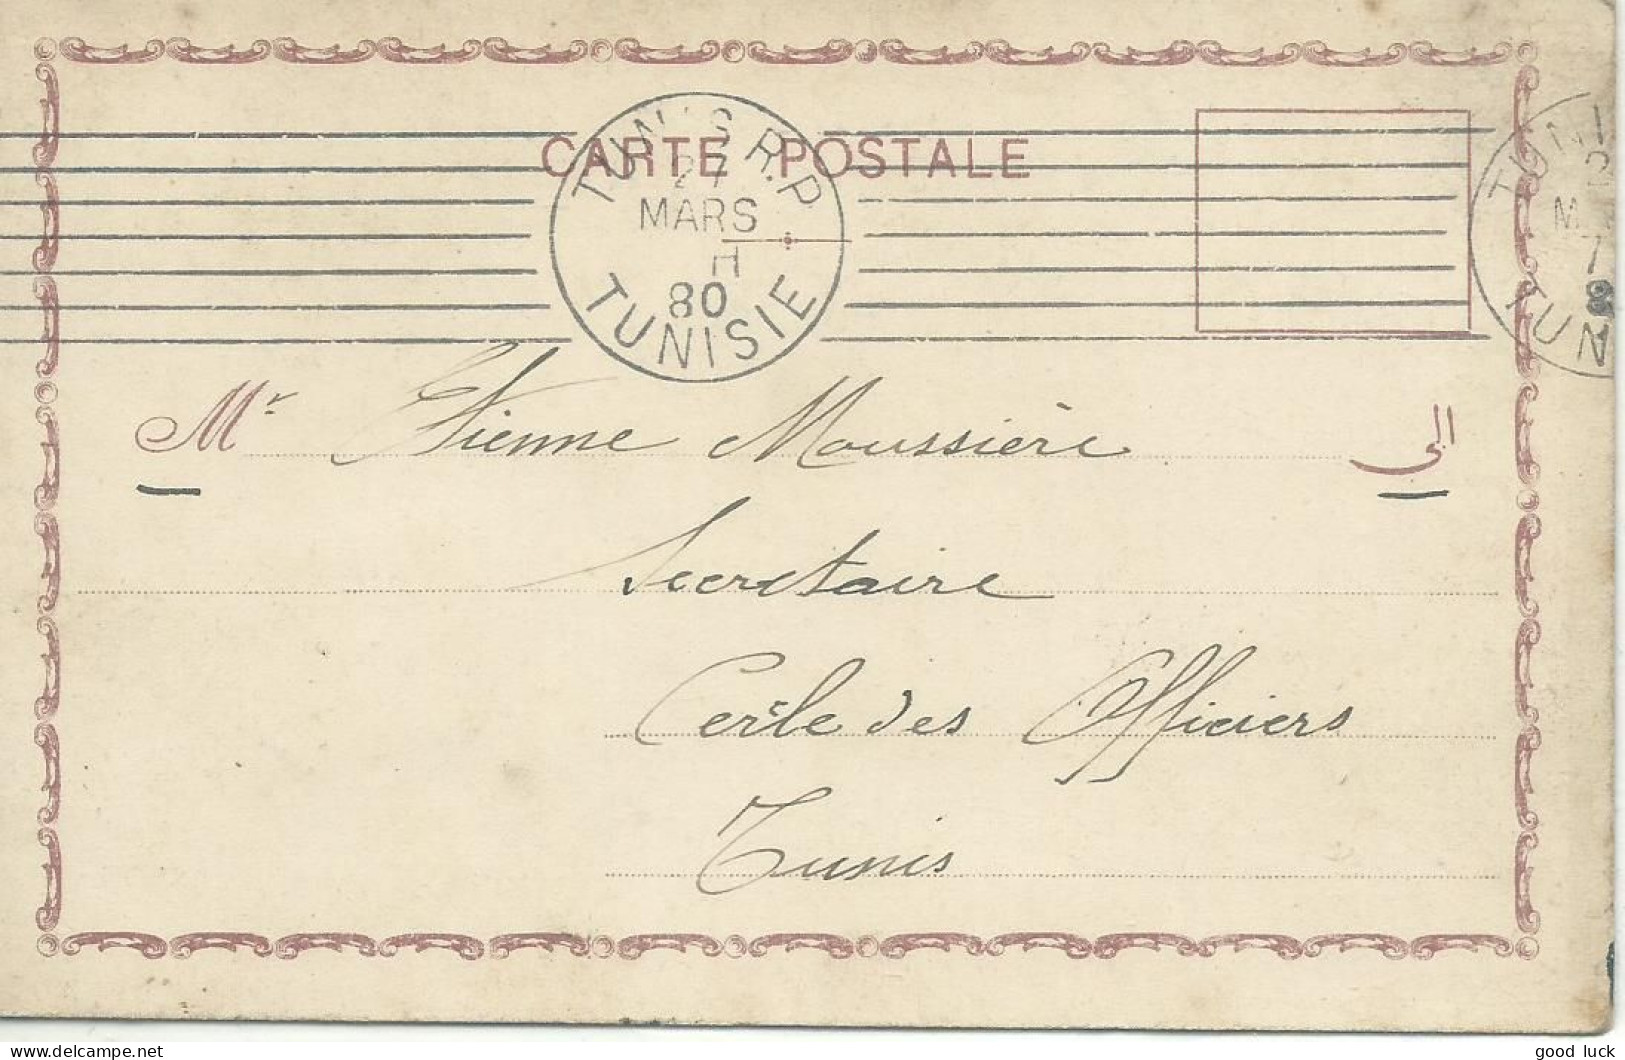 CARTE POSTALE
TUNIS R.P.
27
MARS
H
80
TUNISIE
TUNI
M
7
8
TUN
Mr Etienne Moussière
الى
Secretaire
Cercle des Officiers
Tunis
good luck
delcampe.net